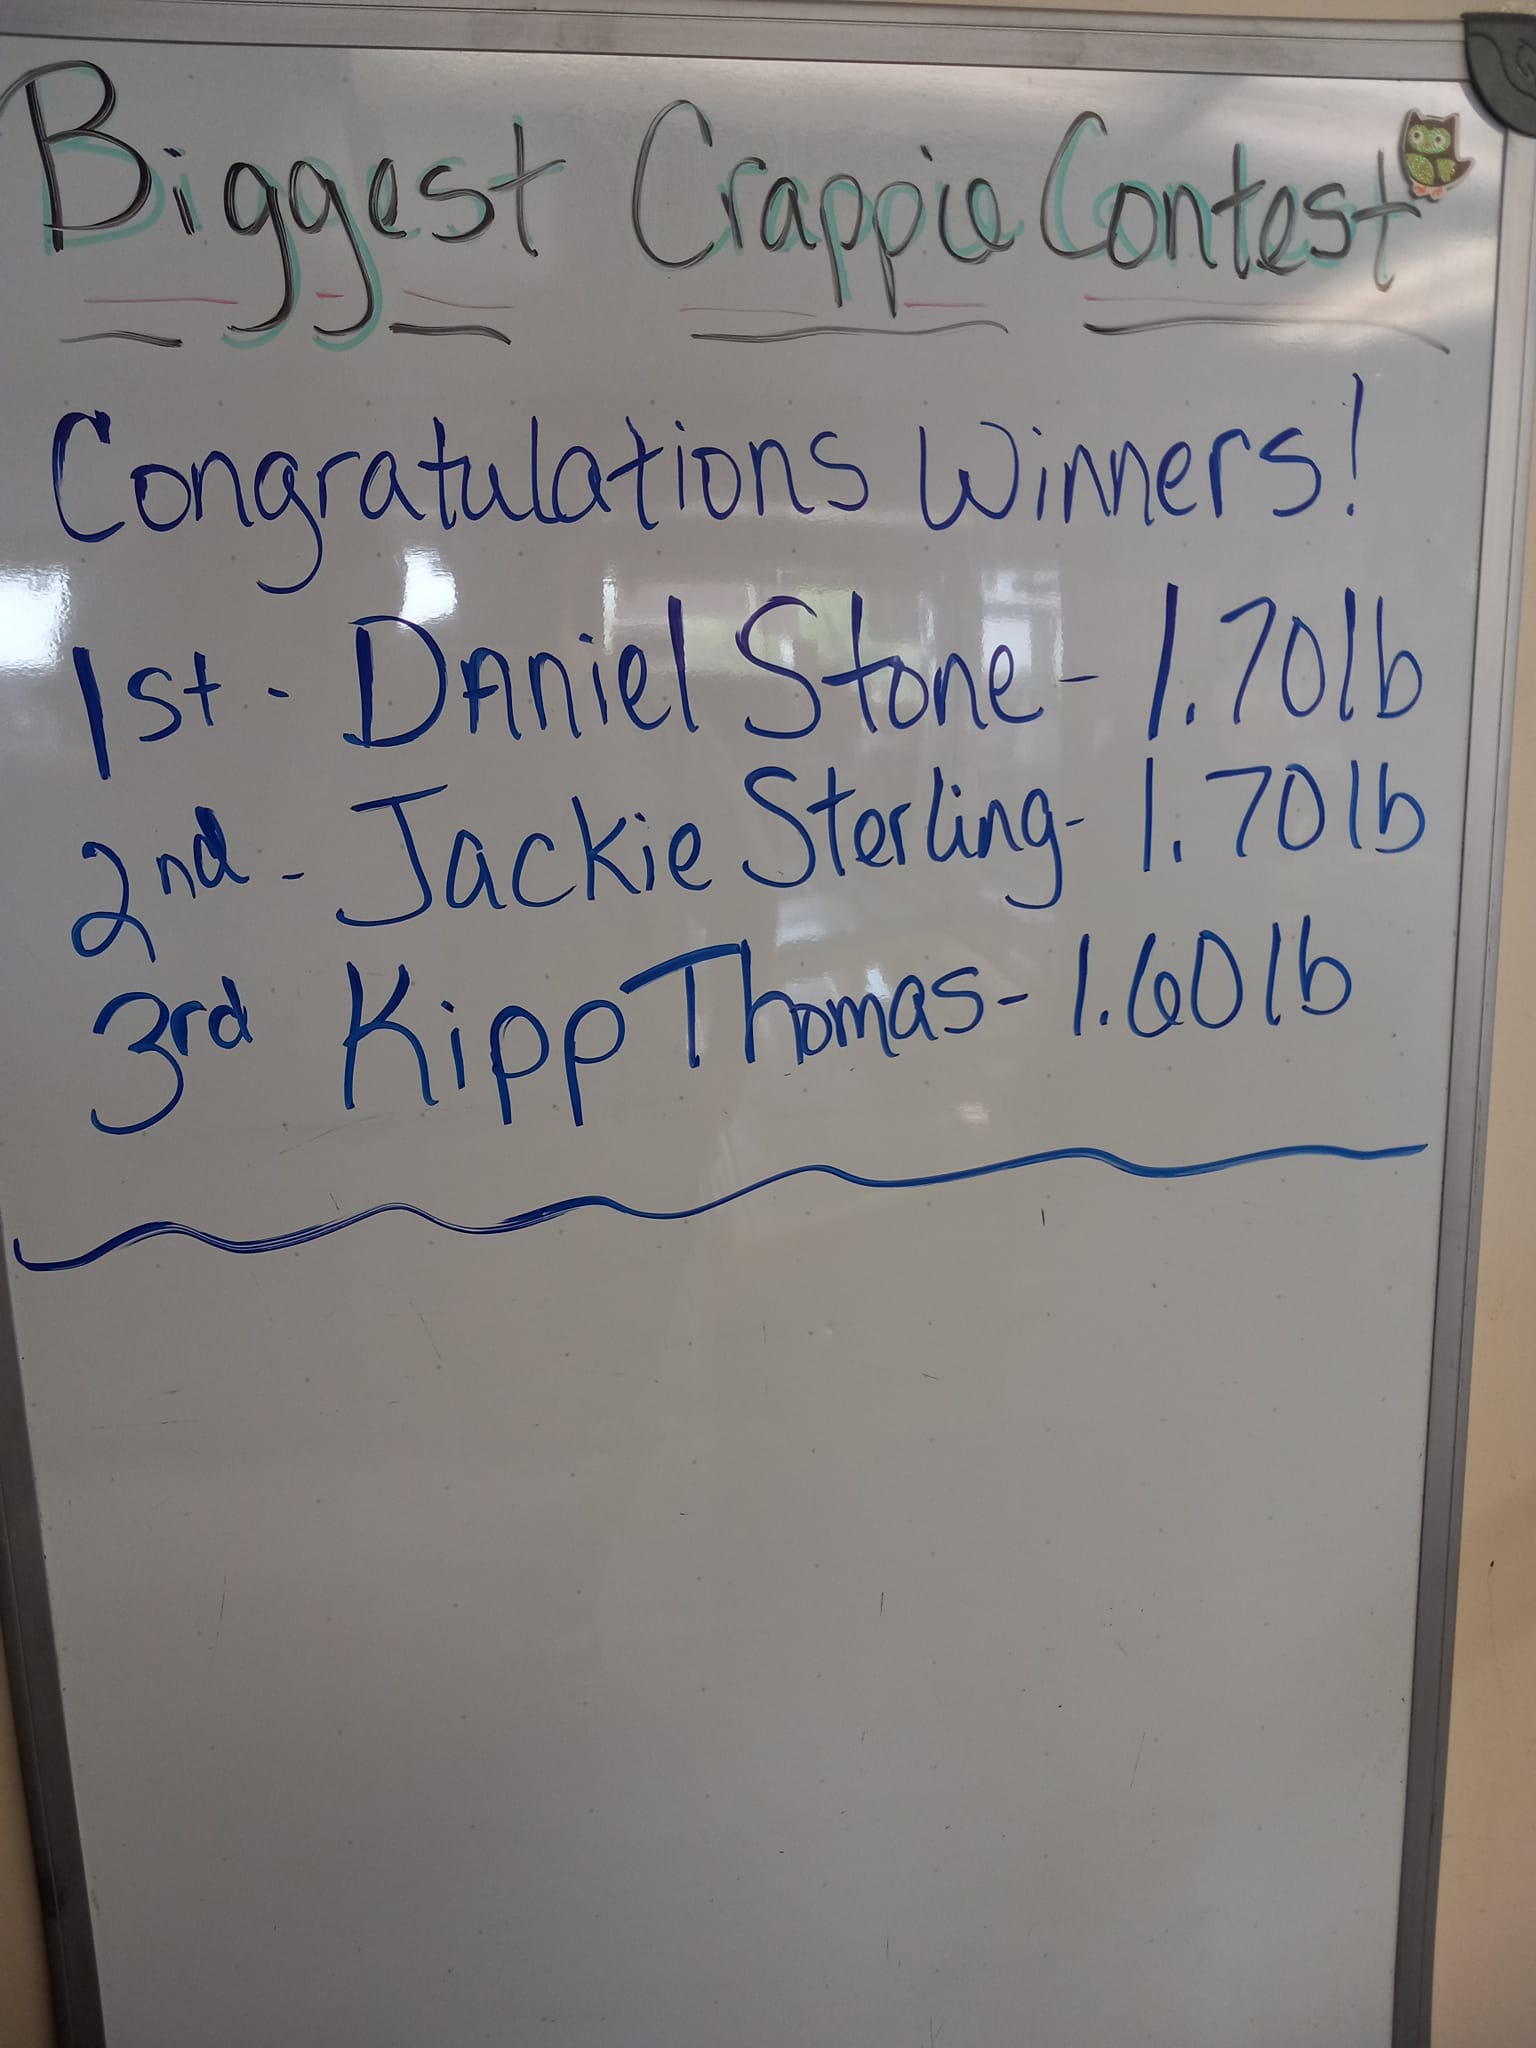 Biggest Crappie Contest
Congratulations Winners!
1st - Daniel Stone - 1.70lb
2nd - Jackie Sterling - 1.70lb
3rd Kipp Thomas - 1.60lb